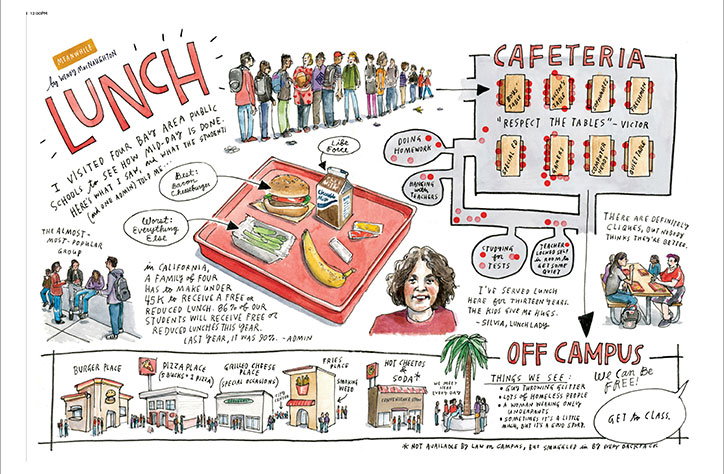 12:00PM
MEANWHILE
by WENDY MacNAUGHTON
LUNCH
I VISITED FOUR BAY AREA PUBLIC
SCHOOLS to SEE HOW MID-DAY IS DONE.
HERE'S WHAT I SAW, and WHAT THE STUDENTS
(and ONE ADMIN) TOLD ME...
Life
Force
Best:
Bacon
Cheeseburger
Worst:
Everything
Else
THE ALMOST-
MOST-POPULAR
GROUP
in CALIFORNIA,
A FAMILY OF FOUR
HAS to MAKE UNDER
45K to RECEIVE A FREE or
REDUCED LUNCH. 86% OF OUR
STUDENTS WILL RECEIVE FREE or
REDUCED LUNCHES THIS YEAR.
LAST YEAR, IT WAS 90%. -ADMIN
CAFETERIA
FRESHMEN
"RESPECT THE TABLES" - VICTOR
SPECIAL ED
DANCERS
COMPUTER
NERDS
DOING
HOMEWORK
HANGING
with
TEACHERS
STUDYING
for
TESTS
TEACHER
LOCKED SELF
in ROOM to
GET SOME
QUIET
THERE ARE DEFINITELY
CLIQUES, BUT NOBODY
THINKS THEY'RE BETTER.
I'VE SERVED LUNCH
HERE for THIRTEEN YEARS.
THE KIDS GIVE ME HUGS.
- SILVIA, LUNCHLADY
OFF CAMPUS
BURGER PLACE
PIZZA PLACE
(5 BUCKS = 1 PIZZA)
GRILLED CHEESE
PLACE
(SPECIAL OCCASIONS)
FRIES
PLACE
SMOKING
WEED
HOT CHEETOS
&
SODA*
CONVENIENCE STORE
WE MEET
HERE
EVERY DAY
THINGS WE SEE:
• GUY THROWING GLITTER
• LOTS OF HOMELESS PEOPLE
• A WOMAN WEARING ONLY
UNDERPANTS
• SOMETIMES IT'S A LITTLE
MUCH, BUT IT'S A GOOD SPORT.
WE CAN BE
FREE!
GET to CLASS.
* NOT AVAILABLE BY LAW on CAMPUS, BUT SMUGGLED in BY EVERY BACKPACK